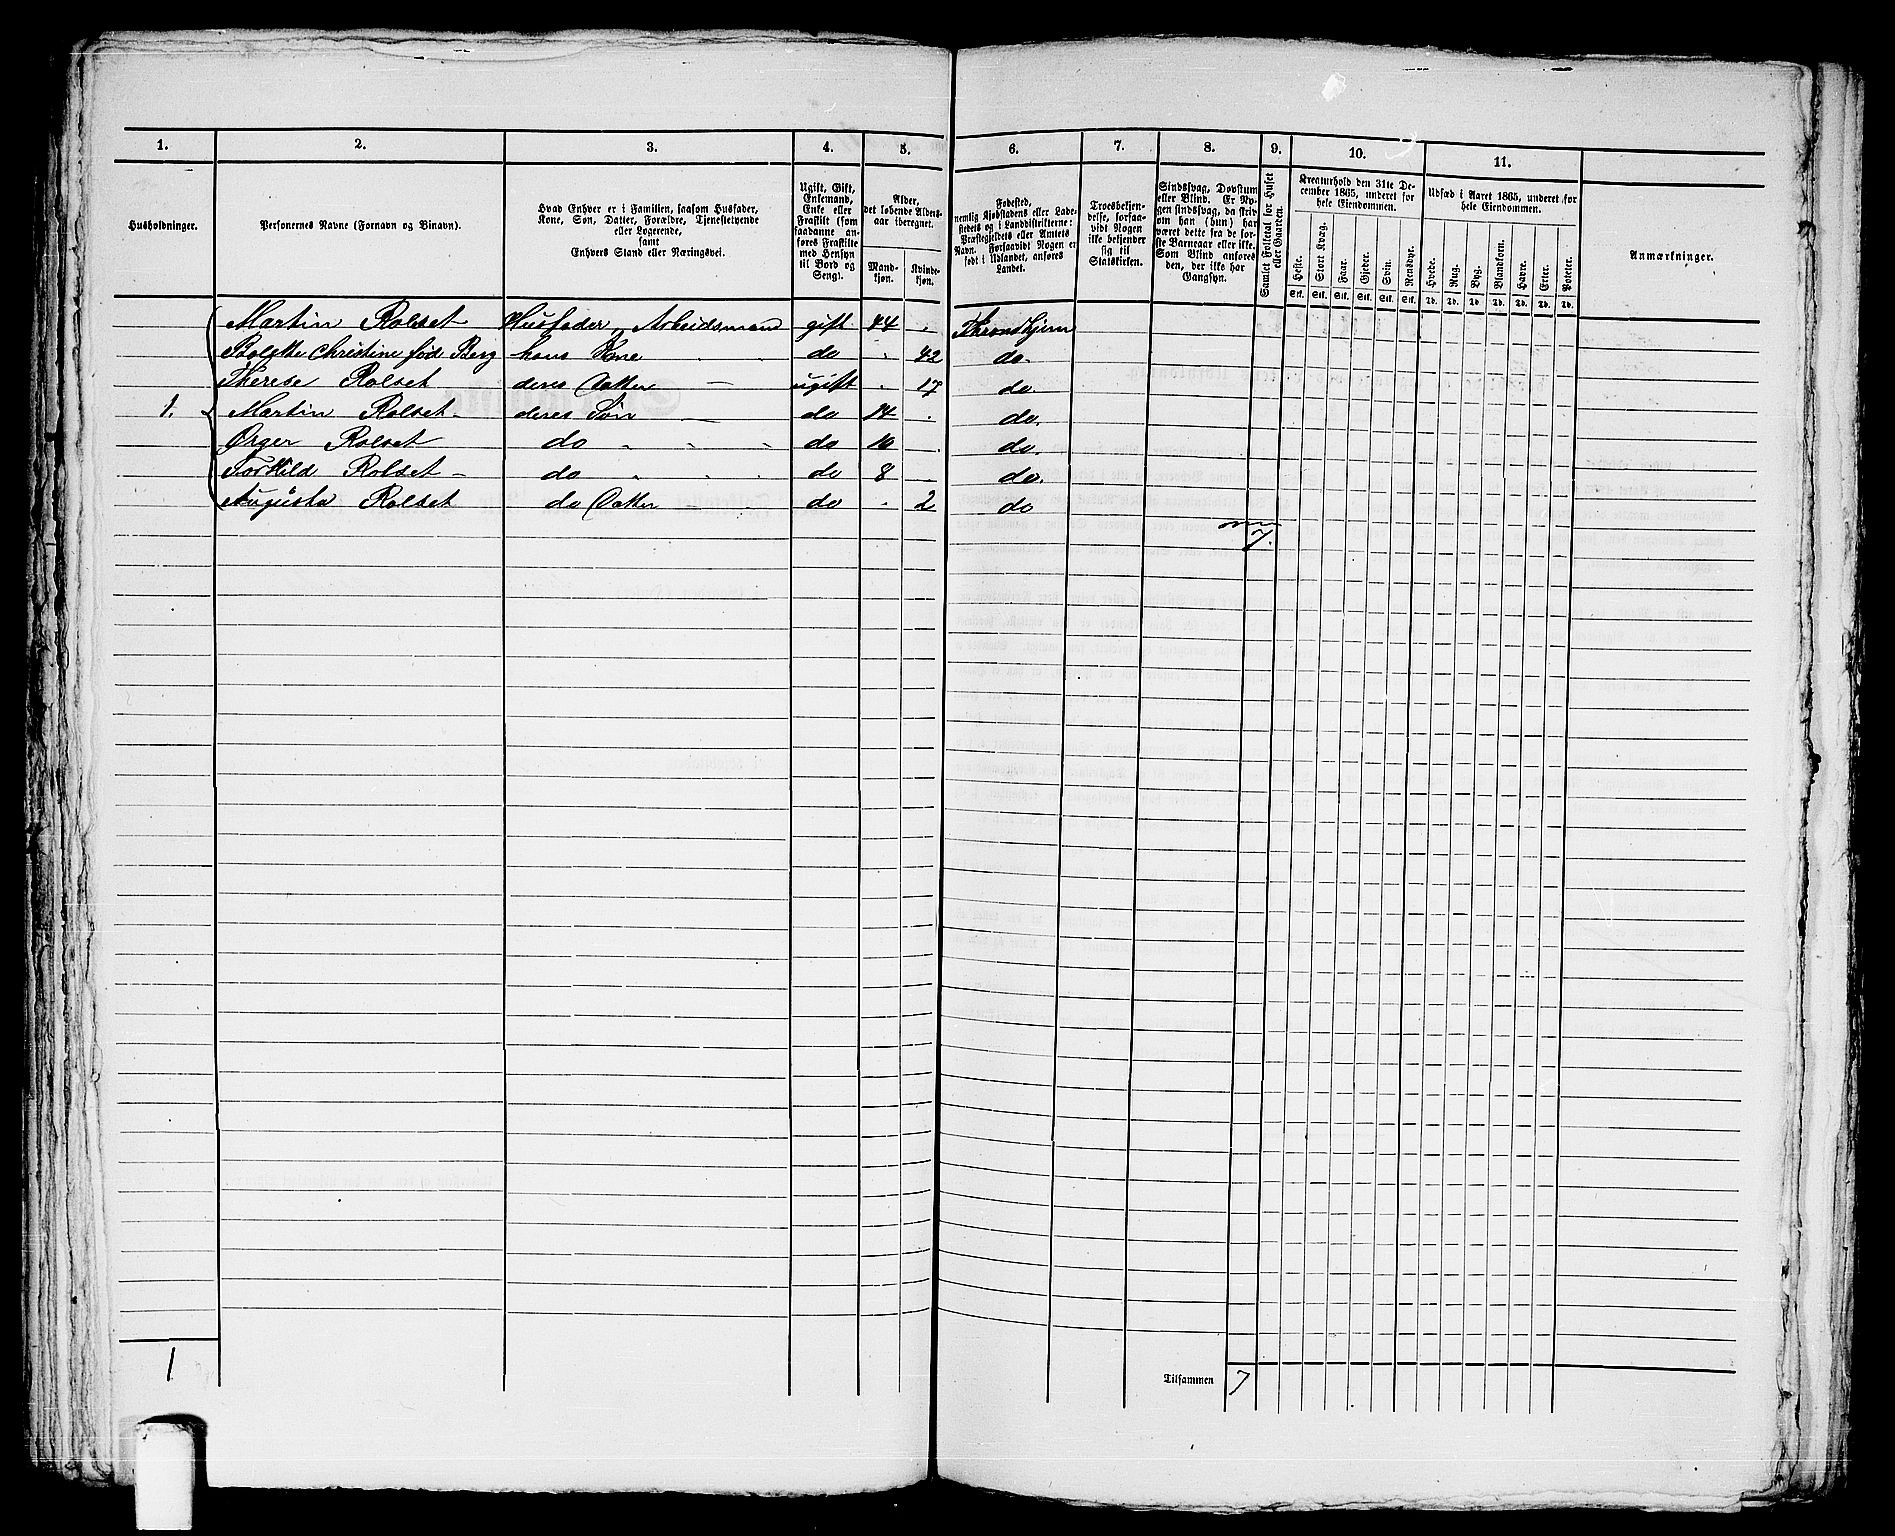 1. 2. 3. 4. 5. 6. 7. 8. 9. 10. 11.
Husholdninger.
Personernes Navne (Fornavn og Binavn).
Hvad Enhver er i Familien, saasom Husfader,
Kone, Søn, Datter, Forældre, Tjenestetyende
eller Logerende,
samt
Enhvers Stand eller Næringsvei.
Ugift, Gift,
Enkemand,
Enke eller
Fraskilt (som
saadanne an-
føres Fraskilte
med Hensyn
til Bord og
Seng).
Alder,
det løbende Alders-
aar iberegnet.
Mand-
kjøn.
Kvinde-
kjøn.
Fødested,
nemlig Kjøbstadens eller Lade-
stedets og i Landdistrikterne:
Præstegjeldets eller Annexets
Navn. Forsaavidt Nogen er
født i Udlandet, anføres
Landet.
Troesbekjen-
delse, forsaa-
vidt Nogen
ikke bekjender
sig til
Statskirken.
Sindssvag, Døvstum
eller Blind. Er No-
gen sindssvag, da skriv
om han (hun) har
været dette fra de før-
ste Barneaar eller ikke.
Som Blind anføres
den, der ikke har
Gangsyn.
Samlet Folketal for Huset
eller Gaarden.
Kreaturhold den 31te De-
cember 1865, underet for
hele Eiendommen.
Heste. Stort Kvæg. Faar. Gjeder. Svin. Rensdyr.
Stk. Stk. Stk. Stk. Stk. Stk.
Udsæd i Aaret 1865, underet for
hele Eiendommen.
Hvede. Rug. Byg. Blandkorn. Havre. Erter. Poteter.
Td. Td. Td. Td. Td. Td. Td.
Anmærkninger.
Martin Rolset Husfader, Arbeidsmand gift 44 . Throndhjem
Christine fød Berg hans Kone do . 42 do.
Therese Rolset deres Datter — ugift . 17 do.
1. Martin Rolset deres Søn — do 14 . do.
Rolset do do 10 . do.
Rolset do do 8 do.
Augusta Rolset do Datter do . 2 do
7.
1
Tilsammen 7